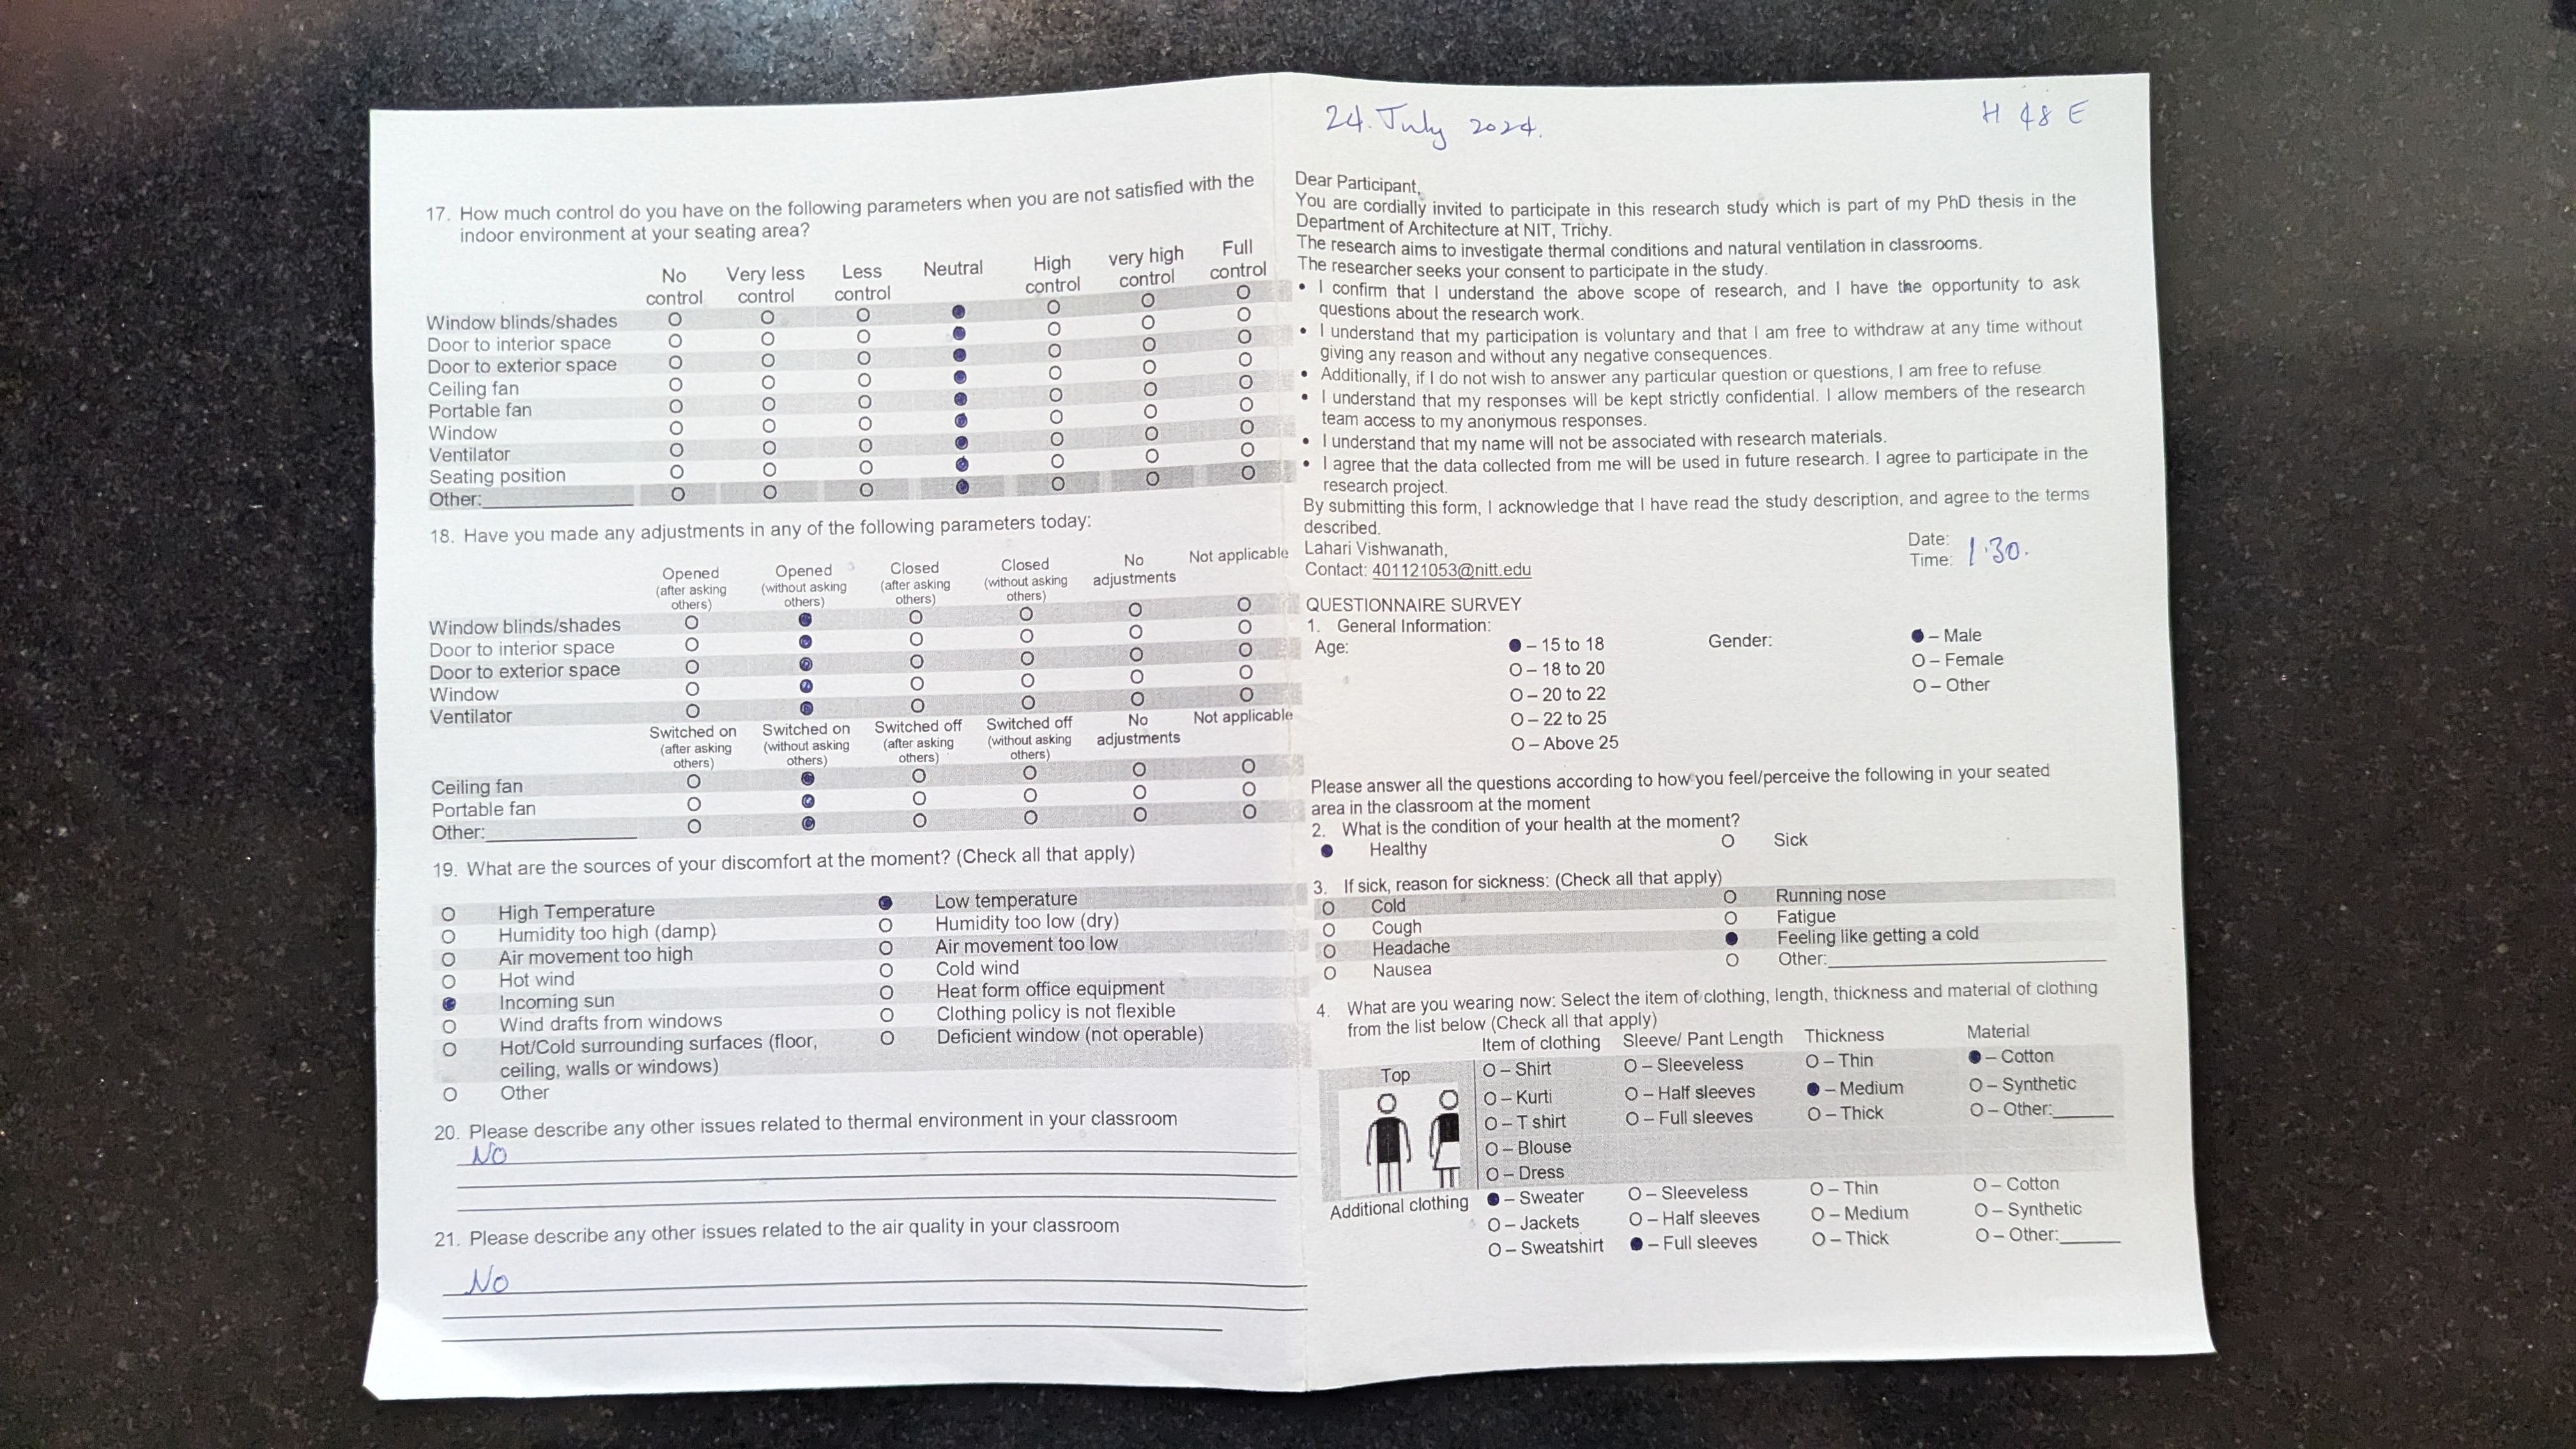 17. How much control do you have on the following parameters when you are not satisfied with the
indoor environment at your seating area?
No control Very less control Less control Neutral High control very high control Full control
Window blinds/shades
Door to interior space
Door to exterior space
Ceiling fan
Portable fan
Window
Ventilator
Seating position
Other:
18. Have you made any adjustments in any of the following parameters today:
Opened (after asking others) Opened (without asking others) Closed (after asking others) Closed (without asking others) No adjustments Not applicable
Window blinds/shades
Door to interior space
Door to exterior space
Window
Ventilator
Switched on (after asking others) Switched on (without asking others) Switched off (after asking others) Switched off (without asking others) No adjustments Not applicable
Ceiling fan
Portable fan
Other:
19. What are the sources of your discomfort at the moment? (Check all that apply)
High Temperature Low temperature
Humidity too high (damp) Humidity too low (dry)
Air movement too high Air movement too low
Hot wind Cold wind
Incoming sun Heat form office equipment
Wind drafts from windows Clothing policy is not flexible
Hot/Cold surrounding surfaces (floor, Deficient window (not operable)
ceiling, walls or windows)
Other
20. Please describe any other issues related to thermal environment in your classroom
No
21. Please describe any other issues related to the air quality in your classroom
No
24. July 2024. H 48 E
Dear Participant,
You are cordially invited to participate in this research study which is part of my PhD thesis in the
Department of Architecture at NIT, Trichy.
The research aims to investigate thermal conditions and natural ventilation in classrooms.
The researcher seeks your consent to participate in the study.
• I confirm that I understand the above scope of research, and I have the opportunity to ask
questions about the research work.
• I understand that my participation is voluntary and that I am free to withdraw at any time without
giving any reason and without any negative consequences.
• Additionally, if I do not wish to answer any particular question or questions, I am free to refuse.
• I understand that my responses will be kept strictly confidential. I allow members of the research
team access to my anonymous responses.
• I understand that my name will not be associated with research materials.
• I agree that the data collected from me will be used in future research. I agree to participate in the
research project.
By submitting this form, I acknowledge that I have read the study description, and agree to the terms
described.
Lahari Vishwanath, Date:
Contact: 401121053@nitt.edu Time: 1.30.
QUESTIONNAIRE SURVEY
1. General Information:
Age: – 15 to 18 Gender: – Male
– 18 to 20 – Female
– 20 to 22 – Other
– 22 to 25
– Above 25
Please answer all the questions according to how you feel/perceive the following in your seated
area in the classroom at the moment
2. What is the condition of your health at the moment?
Healthy Sick
3. If sick, reason for sickness: (Check all that apply)
Cold Running nose
Cough Fatigue
Headache Feeling like getting a cold
Nausea Other:
4. What are you wearing now: Select the item of clothing, length, thickness and material of clothing
from the list below (Check all that apply)
Item of clothing Sleeve/ Pant Length Thickness Material
Top – Shirt – Sleeveless – Thin – Cotton
– Kurti – Half sleeves – Medium – Synthetic
– T shirt – Full sleeves – Thick – Other:
– Blouse
– Dress
Additional clothing – Sweater – Sleeveless – Thin – Cotton
– Jackets – Half sleeves – Medium – Synthetic
– Sweatshirt – Full sleeves – Thick – Other: